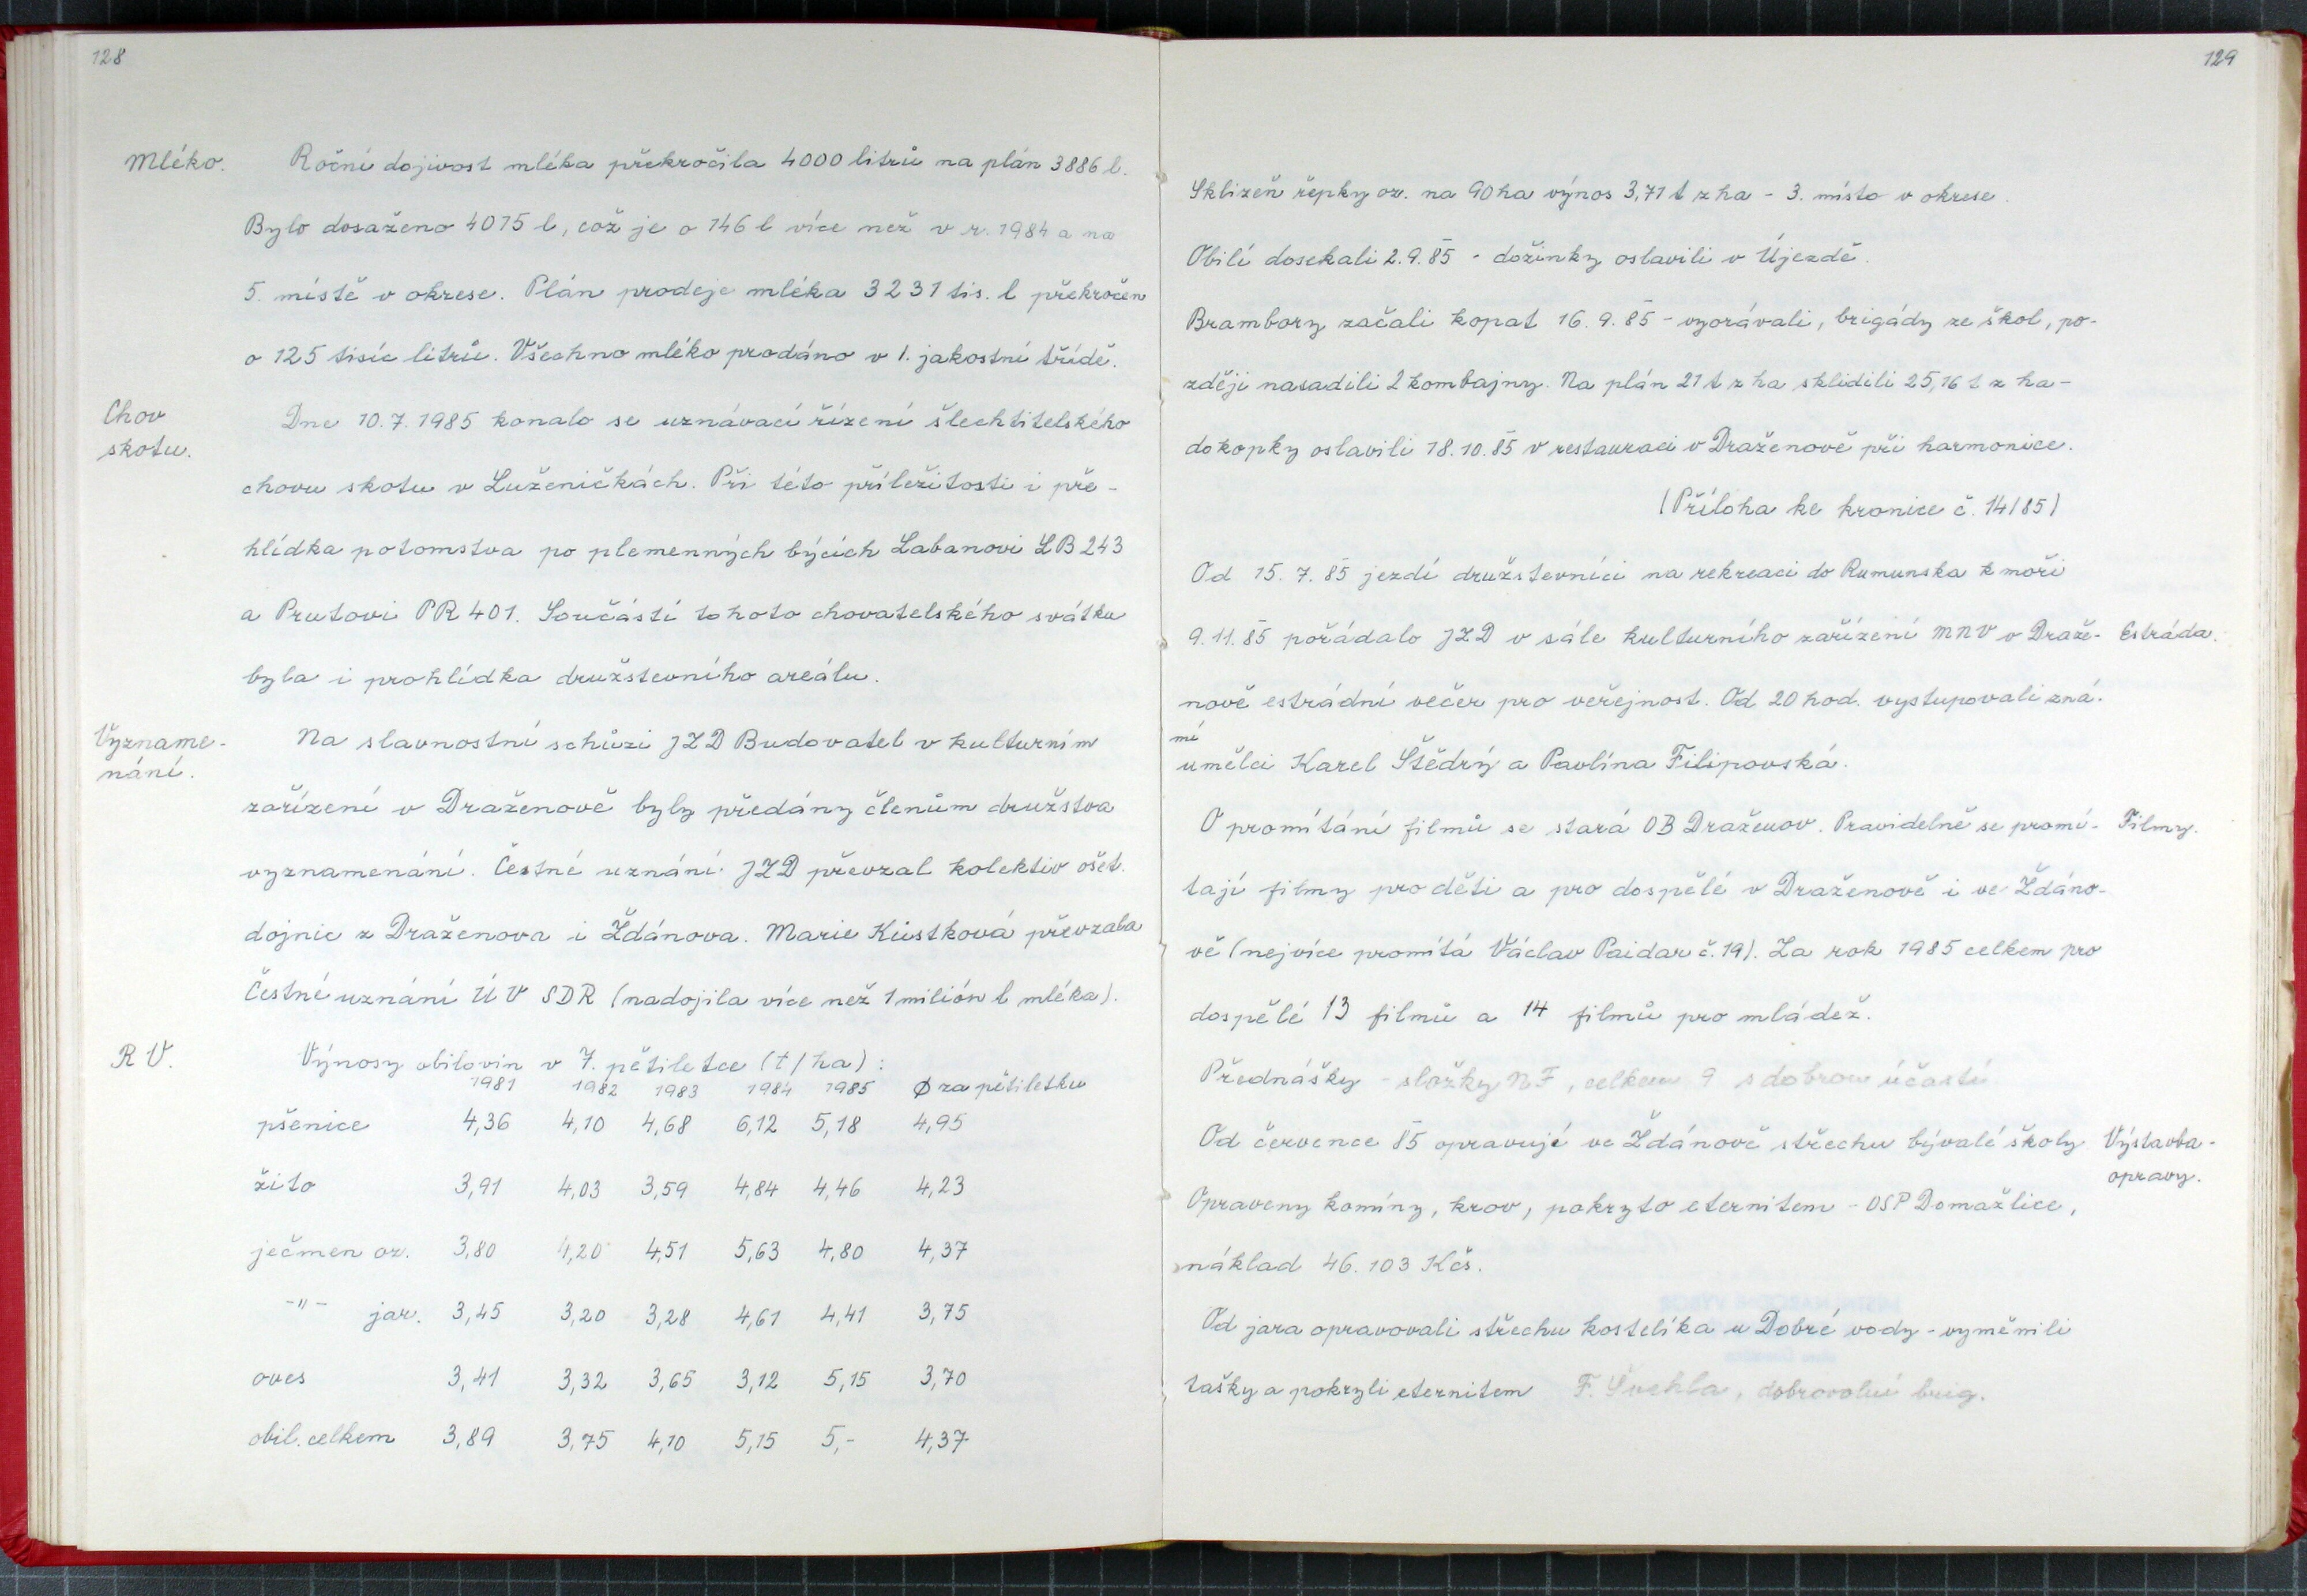 128
Mléko. Roční dojivost mléka překročila 4000 litrů na plán 3886 l.
Bylo dosaženo 4015 l, což je o 146 l více než v r. 1984 a na
5. místě v okrese. Plán prodeje mléka 3231 tis. l překročen
o 125 tisíc litrů. Všechno mléko prodáno v 1. jakostní třídě.
Chov
skotu.
Dne 10.7.1985 konalo se uznávací řízení šlechtitelského
chovu skotu v Luženičkách. Při této příležitosti i pře-
hlídka potomstva po plemenných býcích Labanovi LB 243
a Prutovi PR 401. Součástí tohoto chovatelského svátku
byla i prohlídka družstevního areálu.
Vyzname-
nání.
Na slavnostní schůzi JZD Budovatel v kulturním
zařízení v Draženově byly předány členům družstva
vyznamenání. Čestné uznání JZD převzal kolektiv ošet.
dojnic z Draženova i Ždánova. Marie Küstková převzala
Čestné uznání ÚV SDR (nadojila více než 1 milión l mléka).
R V. Výnosy obilovin v 7. pětiletce (t/ha):
1981 1982 1983 1984 1985 Ø za pětiletku
pšenice 4,36 4,10 4,68 6,12 5,18 4,95
žito 3,91 4,03 3,59 4,84 4,46 4,23
ječmen oz. 3,80 4,20 4,51 5,63 4,80 4,37
-"- jar. 3,45 3,20 3,28 4,61 4,41 3,75
oves 3,41 3,32 3,65 3,12 5,15 3,70
obil. celkem 3,89 3,75 4,10 5,15 5,- 4,37
129
Sklizeň řepky oz. na 90 ha výnos 3,71 t z ha - 3. místo v okrese.
Obilí dosekali 2.9.85 - dožínky oslavili v Újezdě.
Brambory začali kopat 16.9.85 - vyorávali, brigády ze škol, po-
zději nasadili 2 kombajny. Na plán 21 t z ha sklidili 25,16 t z ha -
dokopky oslavili 18.10.85 v restauraci v Draženově při harmonice.
(Příloha ke kronice č. 14/85)
Od 15.7.85 jezdí družstevníci na rekreaci do Rumunska k moři
9.11.85 pořádalo JZD v sále kulturního zařízení MNV v Draže- Estráda.
nově estrádní večer pro veřejnost. Od 20 hod. vystupovali zná-
mí
umělci Karel Štědrý a Pavlína Filipovská.
O promítání filmů se stará OB Draženov. Pravidelně se promí- Filmy.
tají filmy pro děti a pro dospělé v Draženově i ve Ždáno-
vě (nejvíce promítá Václav Paidar č. 19). Za rok 1985 celkem pro
dospělé 13 filmů a 14 filmů pro mládež.
Přednášky - složky NF, celkem 9 s dobrou účastí
Od července 85 opravují ve Ždánově střechu bývalé školy Výstavba -
opravy.
Opraveny komíny, krov, pokryto eternitem - OSP Domažlice,
náklad 46.103 Kčs.
Od jara opravovali střechu kostelíka u Dobré vody - vyměnili
tašky a pokryli eternitem F. Švehla, dobrovolní brig.